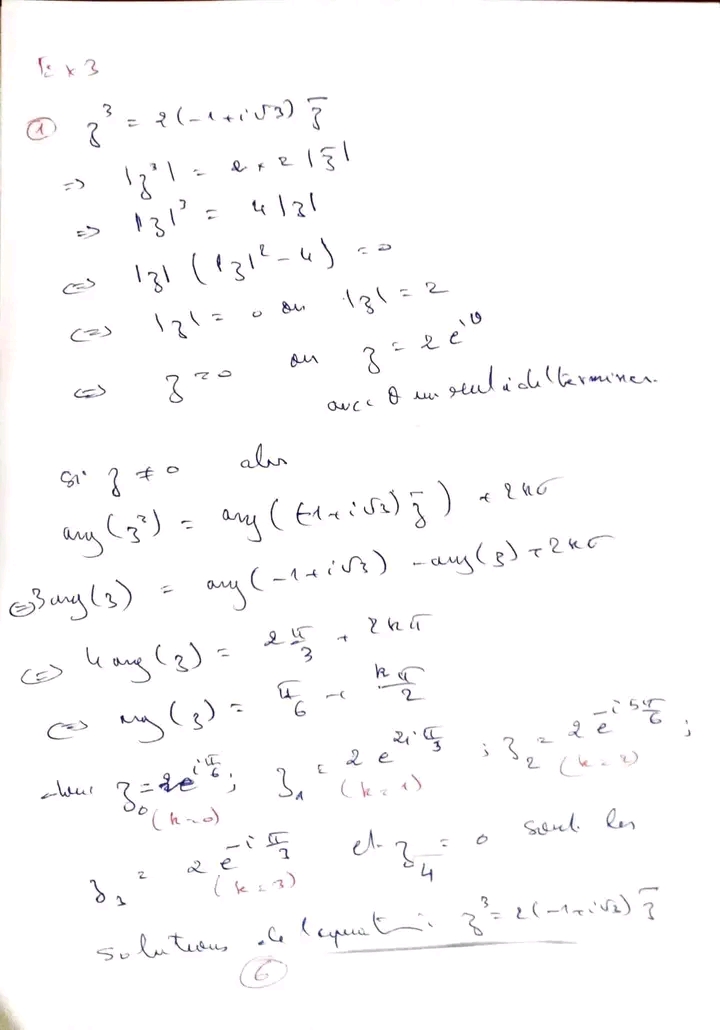 Ex 3
① z³ = 2(-1+i√3) z̄
=> |z³| = 2×2|z̄|
=> |z|³ = 4|z|
<=> |z| (|z|² - 4) = 0
<=> |z| = 0 ou |z| = 2
<=> z = 0 ou z = 2e^{iθ}
avec θ un réel à déterminer.
si z ≠ 0 alors
arg(z³) = arg((-1+i√3) z̄) + 2kπ
<=> 3arg(z) = arg(-1+i√3) - arg(z) + 2kπ
<=> 4arg(z) = 2π/3 + 2kπ
<=> arg(z) = π/6 + kπ/2
z₀ = 2e^{iπ/6} ; z₁ = 2e^{2iπ/3} ; z₂ = 2e^{-i5π/6} ;
(k=0) (k=1) (k=2)
z₃ = 2e^{-iπ/3} et z₄ = 0 sont les
(k=3)
solutions de l'équation z³ = 2(-1+i√3) z̄
⑥